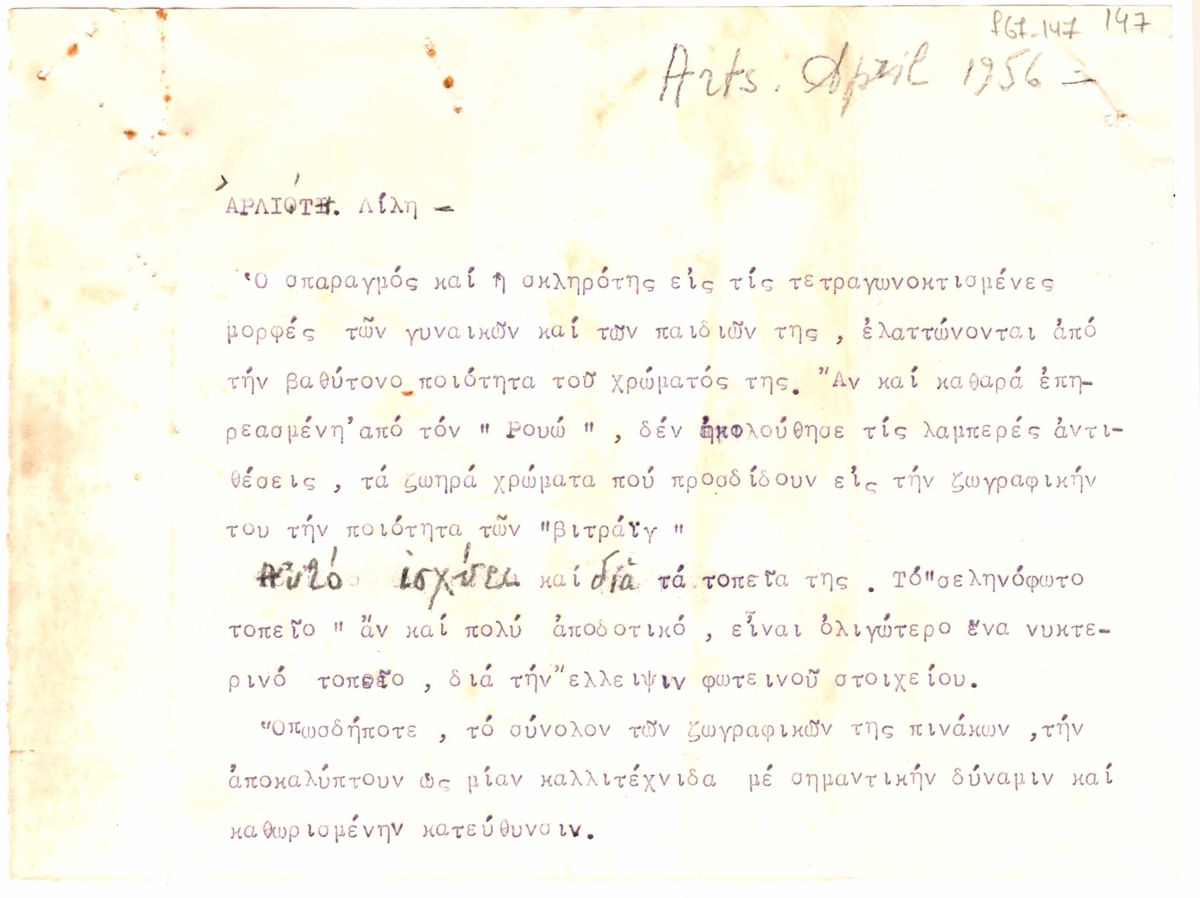 967-147 147
Arts. April 1956 =
ἈΡΛΙΌΤΗ. Λίλη —
Ὁ σπαραγμός καί ἡ σκληρότης εἰς τίς τετραγωνοκτισμένες
μορφές τῶν γυναικῶν καί τῶν παιδιῶν της , ἐλαττώνονται ἀπό
τήν βαθύτονο ποιότητα τοῦ χρώματός της. Ἄν καί καθαρά ἐπη-
ρεασμένη ἀπό τόν " Ρουώ " , δέν ἠκολούθησε τίς λαμπερές ἀντι-
θέσεις , τά ζωηρά χρώματα πού προσδίδουν εἰς τήν ζωγραφικήν
του τήν ποιότητα τῶν "βιτράϊγ "
Αὐτό ἰσχύει καί διὰ τά τοπεῖα της . Τό "σεληνόφωτο
τοπεῖο " ἄν καί πολύ ἀποδοτικό , εἶναι ὀλιγώτερο ἕνα νυκτε-
ρινό τοπεῖο , διά τήν ἔλλειψιν φωτεινοῦ στοιχείου.
Ὁπωσδήποτε , τό σύνολον τῶν ζωγραφικῶν της πινάκων ,τήν
ἀποκαλύπτουν ὡς μίαν καλλιτέχνιδα μέ σημαντικήν δύναμιν καί
καθωρισμένην κατεύθυνσιν.